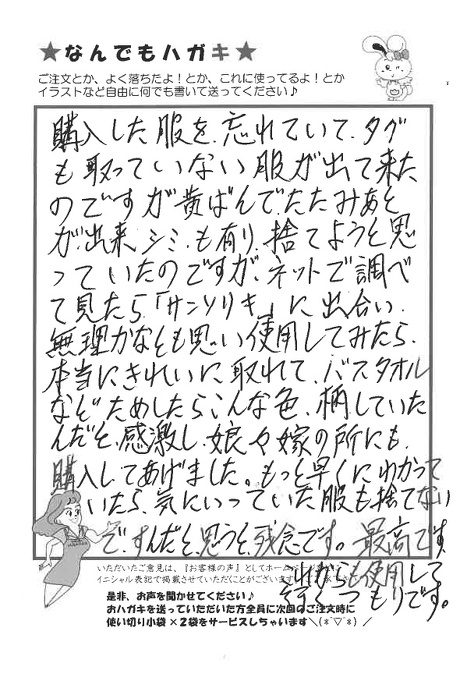 ★なんでもハガキ★
ご注文とか、よく落ちたよ！とか、これに使ってるよ！とか
イラストなど自由に何でも書いて送ってください♪
購入した服を、忘れていて、タグ
も取っていない服が出て来た
のですが黄ばんで、たたみあと
が出来、シミも有り、捨てようと思
っていたのですが、ネットで調べ
て見たら「サンソリキ」に出合い、
無理かなとも思い使用してみたら、
本当にきれいに取れて、バスタオル
などためしたらこんな色、柄していた
んだと、感激し、娘や嫁の所にも、
購入してあげました。もっと早くにわかって
いたら、気にいっていた服も捨てない
で、すんだと、思うと、残念です。最高です。
これからも使用して
いくつもりです。
いただいたご意見は、『お客様の声』としてホーム
イニシャル表記で掲載させていただことがございます
是非、お声を聞かせてください♪
おハガキを送っていただいた方全員に次回のご注文時に
使い切り小袋×2袋をサービスしちゃいます＼(*´▽`*)／